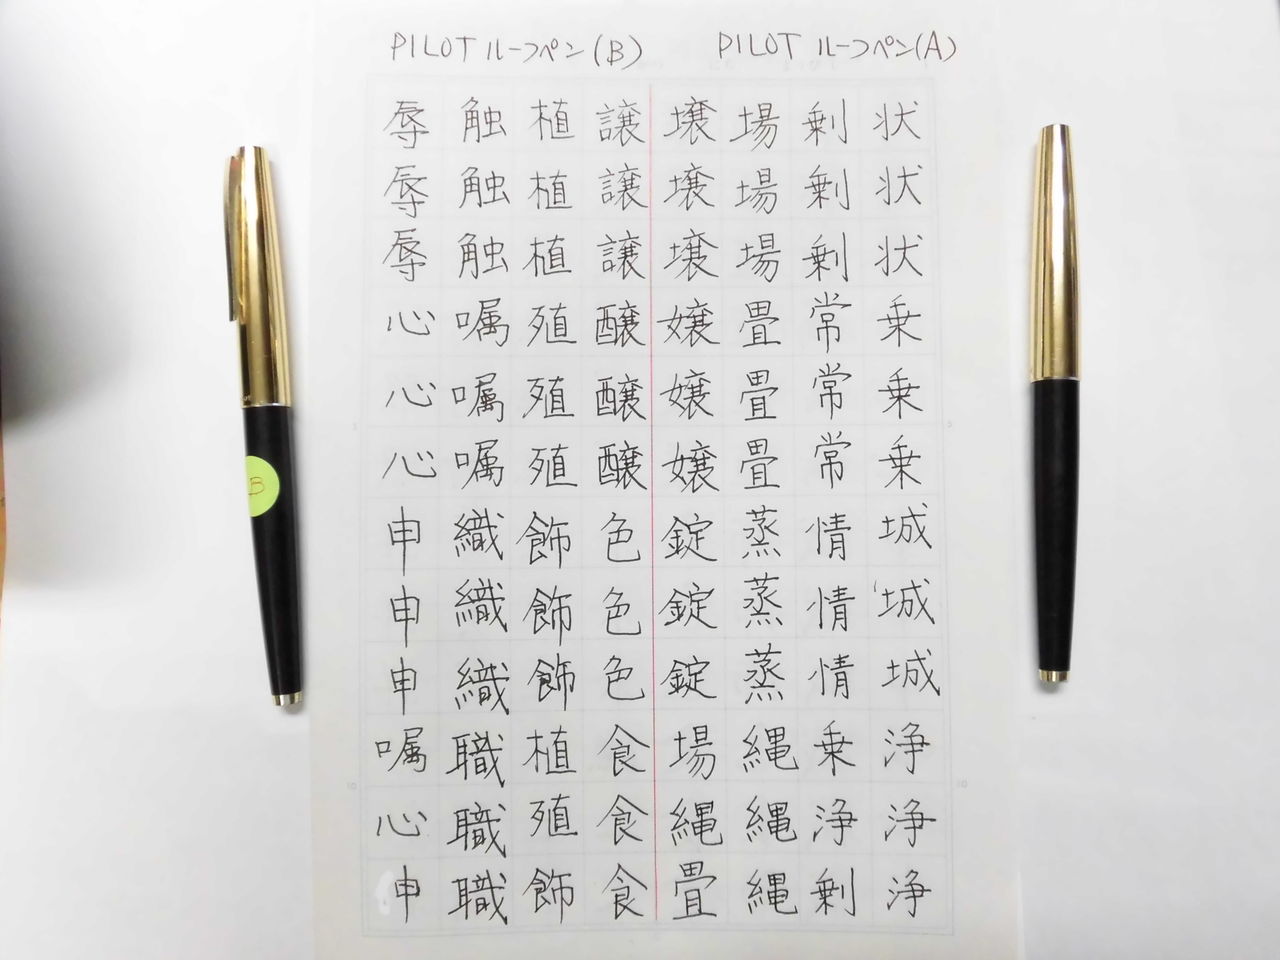 PILOT ルーフペン(A)
状状状乗乗乗城城城浄浄浄
剰剰剰常常常情情情乗浄剰
場場場畳畳畳蒸蒸蒸縄縄縄
壌壌壌嬢嬢嬢錠錠錠場縄畳
PILOT ルーフペン(B)
譲譲譲醸醸醸色色色食食食
植植植殖殖殖飾飾飾植殖飾
触触触嘱嘱嘱織織織職職職
辱辱辱心心心申申申嘱心申
B